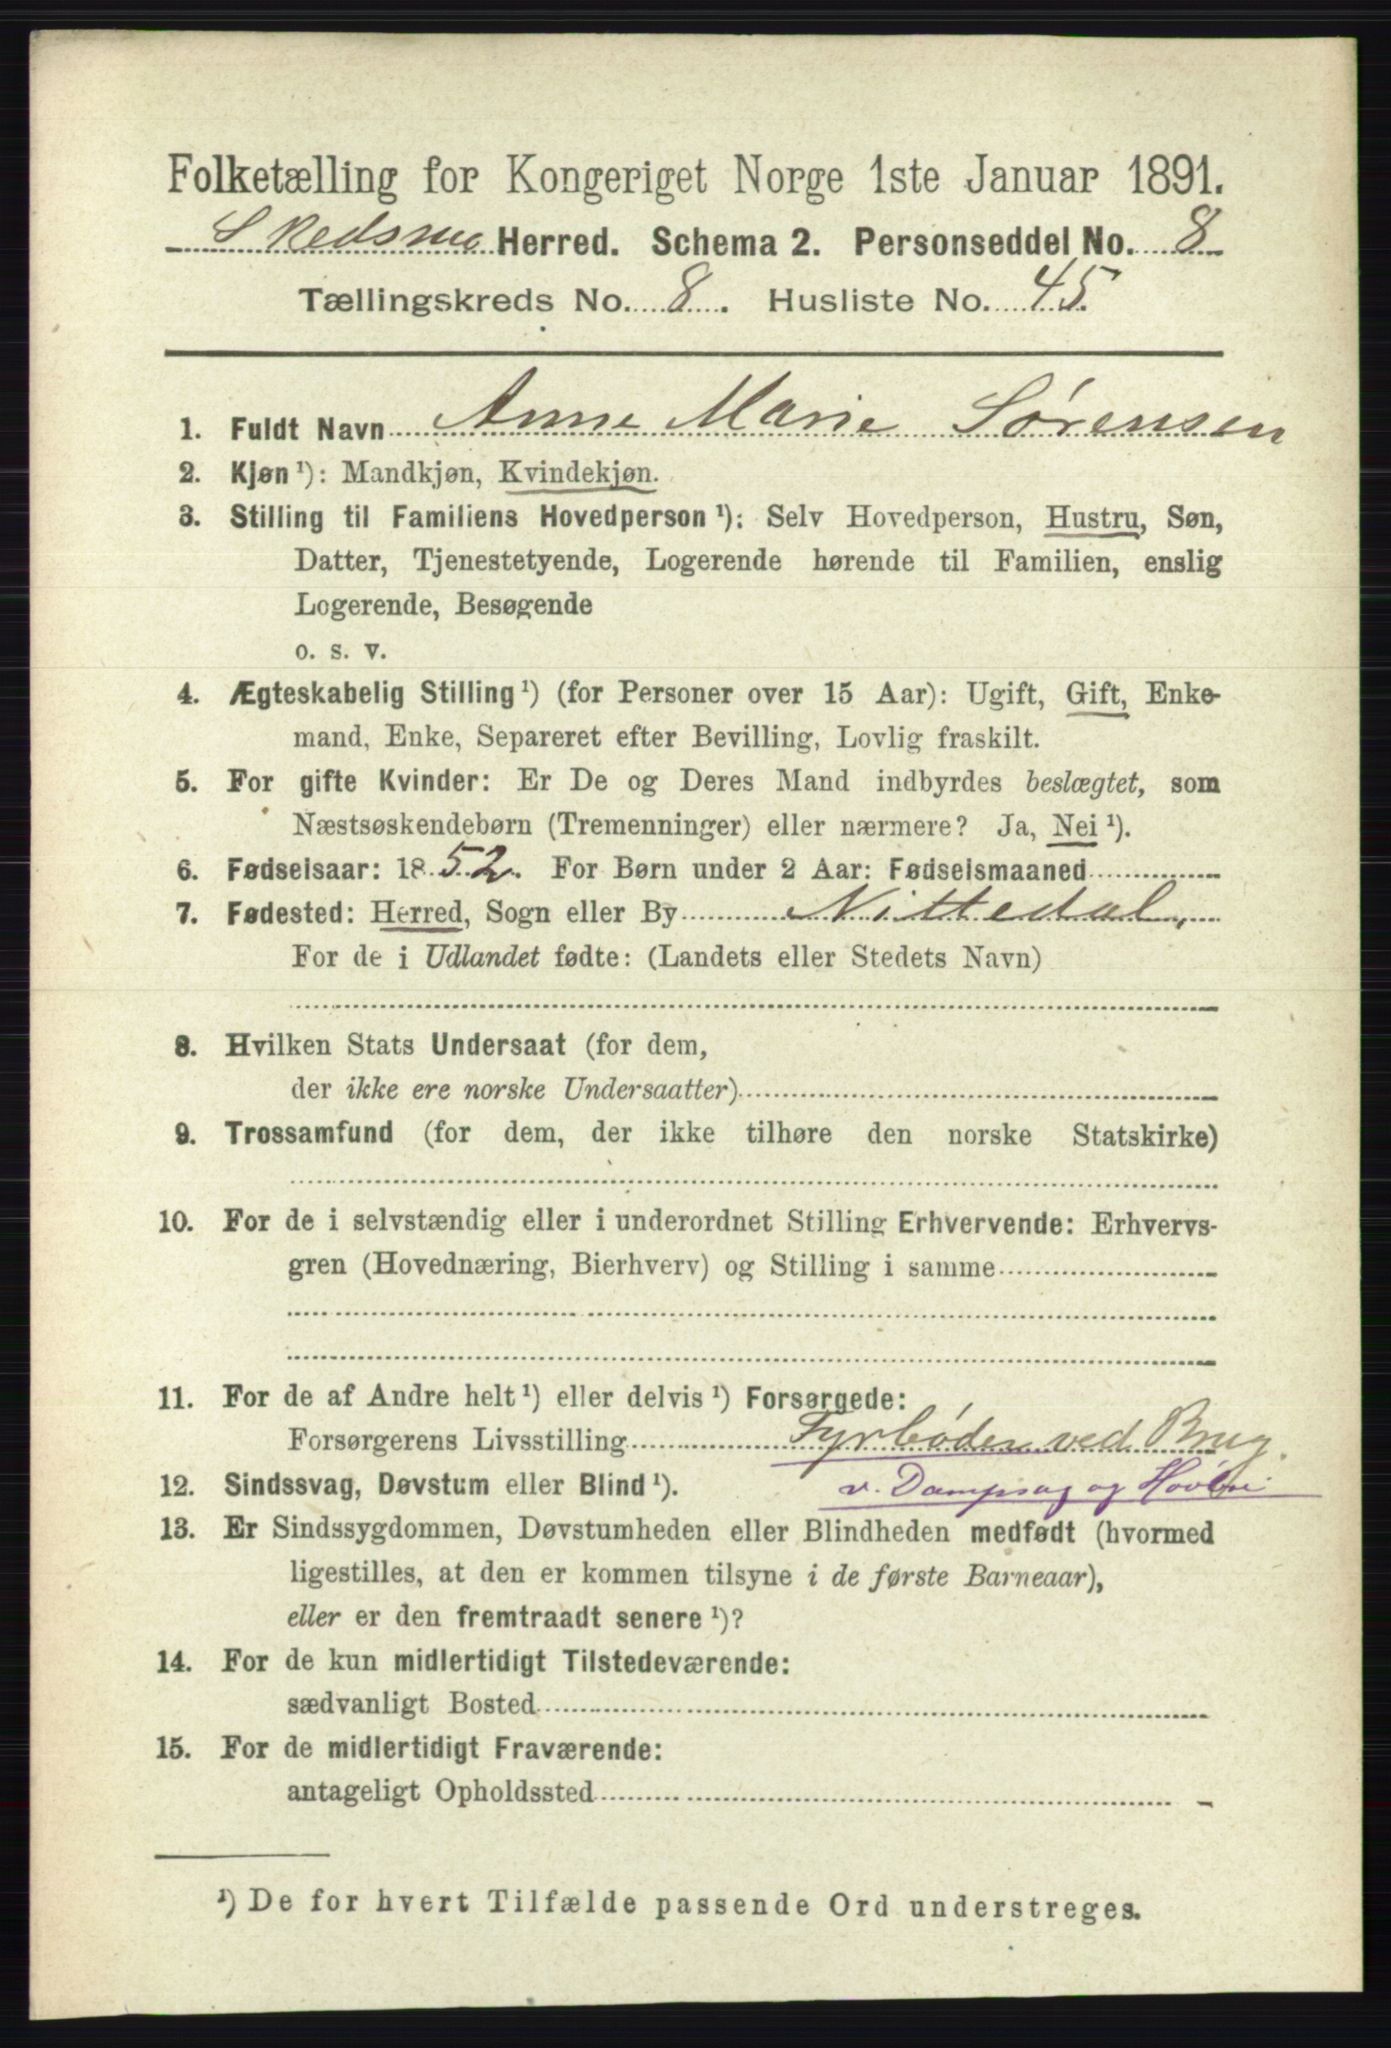 Folketælling for Kongeriget Norge 1ste Januar 1891.
Skedsmo Herred. Schema 2. Personseddel No. 8
Tællingskreds No. 8. Husliste No. 45.
1. Fuldt Navn Anne Marie Sørensen
2. Kjøn ¹): Mandkjøn, Kvindekjøn.
3. Stilling til Familiens Hovedperson ¹): Selv Hovedperson, Hustru, Søn,
Datter, Tjenestetyende, Logerende hørende til Familien, enslig
Logerende, Besøgende
o. s. v.
4. Ægteskabelig Stilling ¹) (for Personer over 15 Aar): Ugift, Gift, Enke-
mand, Enke, Separeret efter Bevilling, Lovlig fraskilt.
5. For gifte Kvinder: Er De og Deres Mand indbyrdes beslægtet, som
Næstsøskendebørn (Tremenninger) eller nærmere? Ja, Nei ¹).
6. Fødselsaar: 1852. For Børn under 2 Aar: Fødselsmaaned
7. Fødested: Herred, Sogn eller By Nittedal,
For de i Udlandet fødte: (Landets eller Stedets Navn)
8. Hvilken Stats Undersaat (for dem,
der ikke ere norske Undersaatter)
9. Trossamfund (for dem, der ikke tilhøre den norske Statskirke)
10. For de i selvstændig eller i underordnet Stilling Erhvervende: Erhvervs-
gren (Hovednæring, Bierhverv) og Stilling i samme
11. For de af Andre helt ¹) eller delvis ¹) Forsørgede:
Forsørgerens Livsstilling Fyrbøder ved Brug.
12. Sindssvag, Døvstum eller Blind ¹). v. Dampsag og Høvleri
13. Er Sindssygdommen, Døvstumheden eller Blindheden medfødt (hvormed
ligestilles, at den er kommen tilsyne i de første Barneaar),
eller er den fremtraadt senere ¹)?
14. For de kun midlertidigt Tilstedeværende:
sædvanligt Bosted
15. For de midlertidigt Fraværende:
antageligt Opholdssted
¹) De for hvert Tilfælde passende Ord understreges.